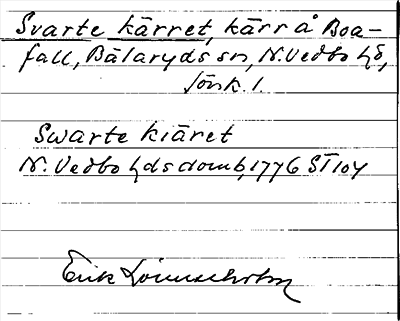 Svarte kärret, kärr å Boa-
fall, Bälaryds sn, N. Vedbo hd,
Jönk. l.
Swarte kiäret
N. Vedbo hds domb, 1776 ST 104
Erik